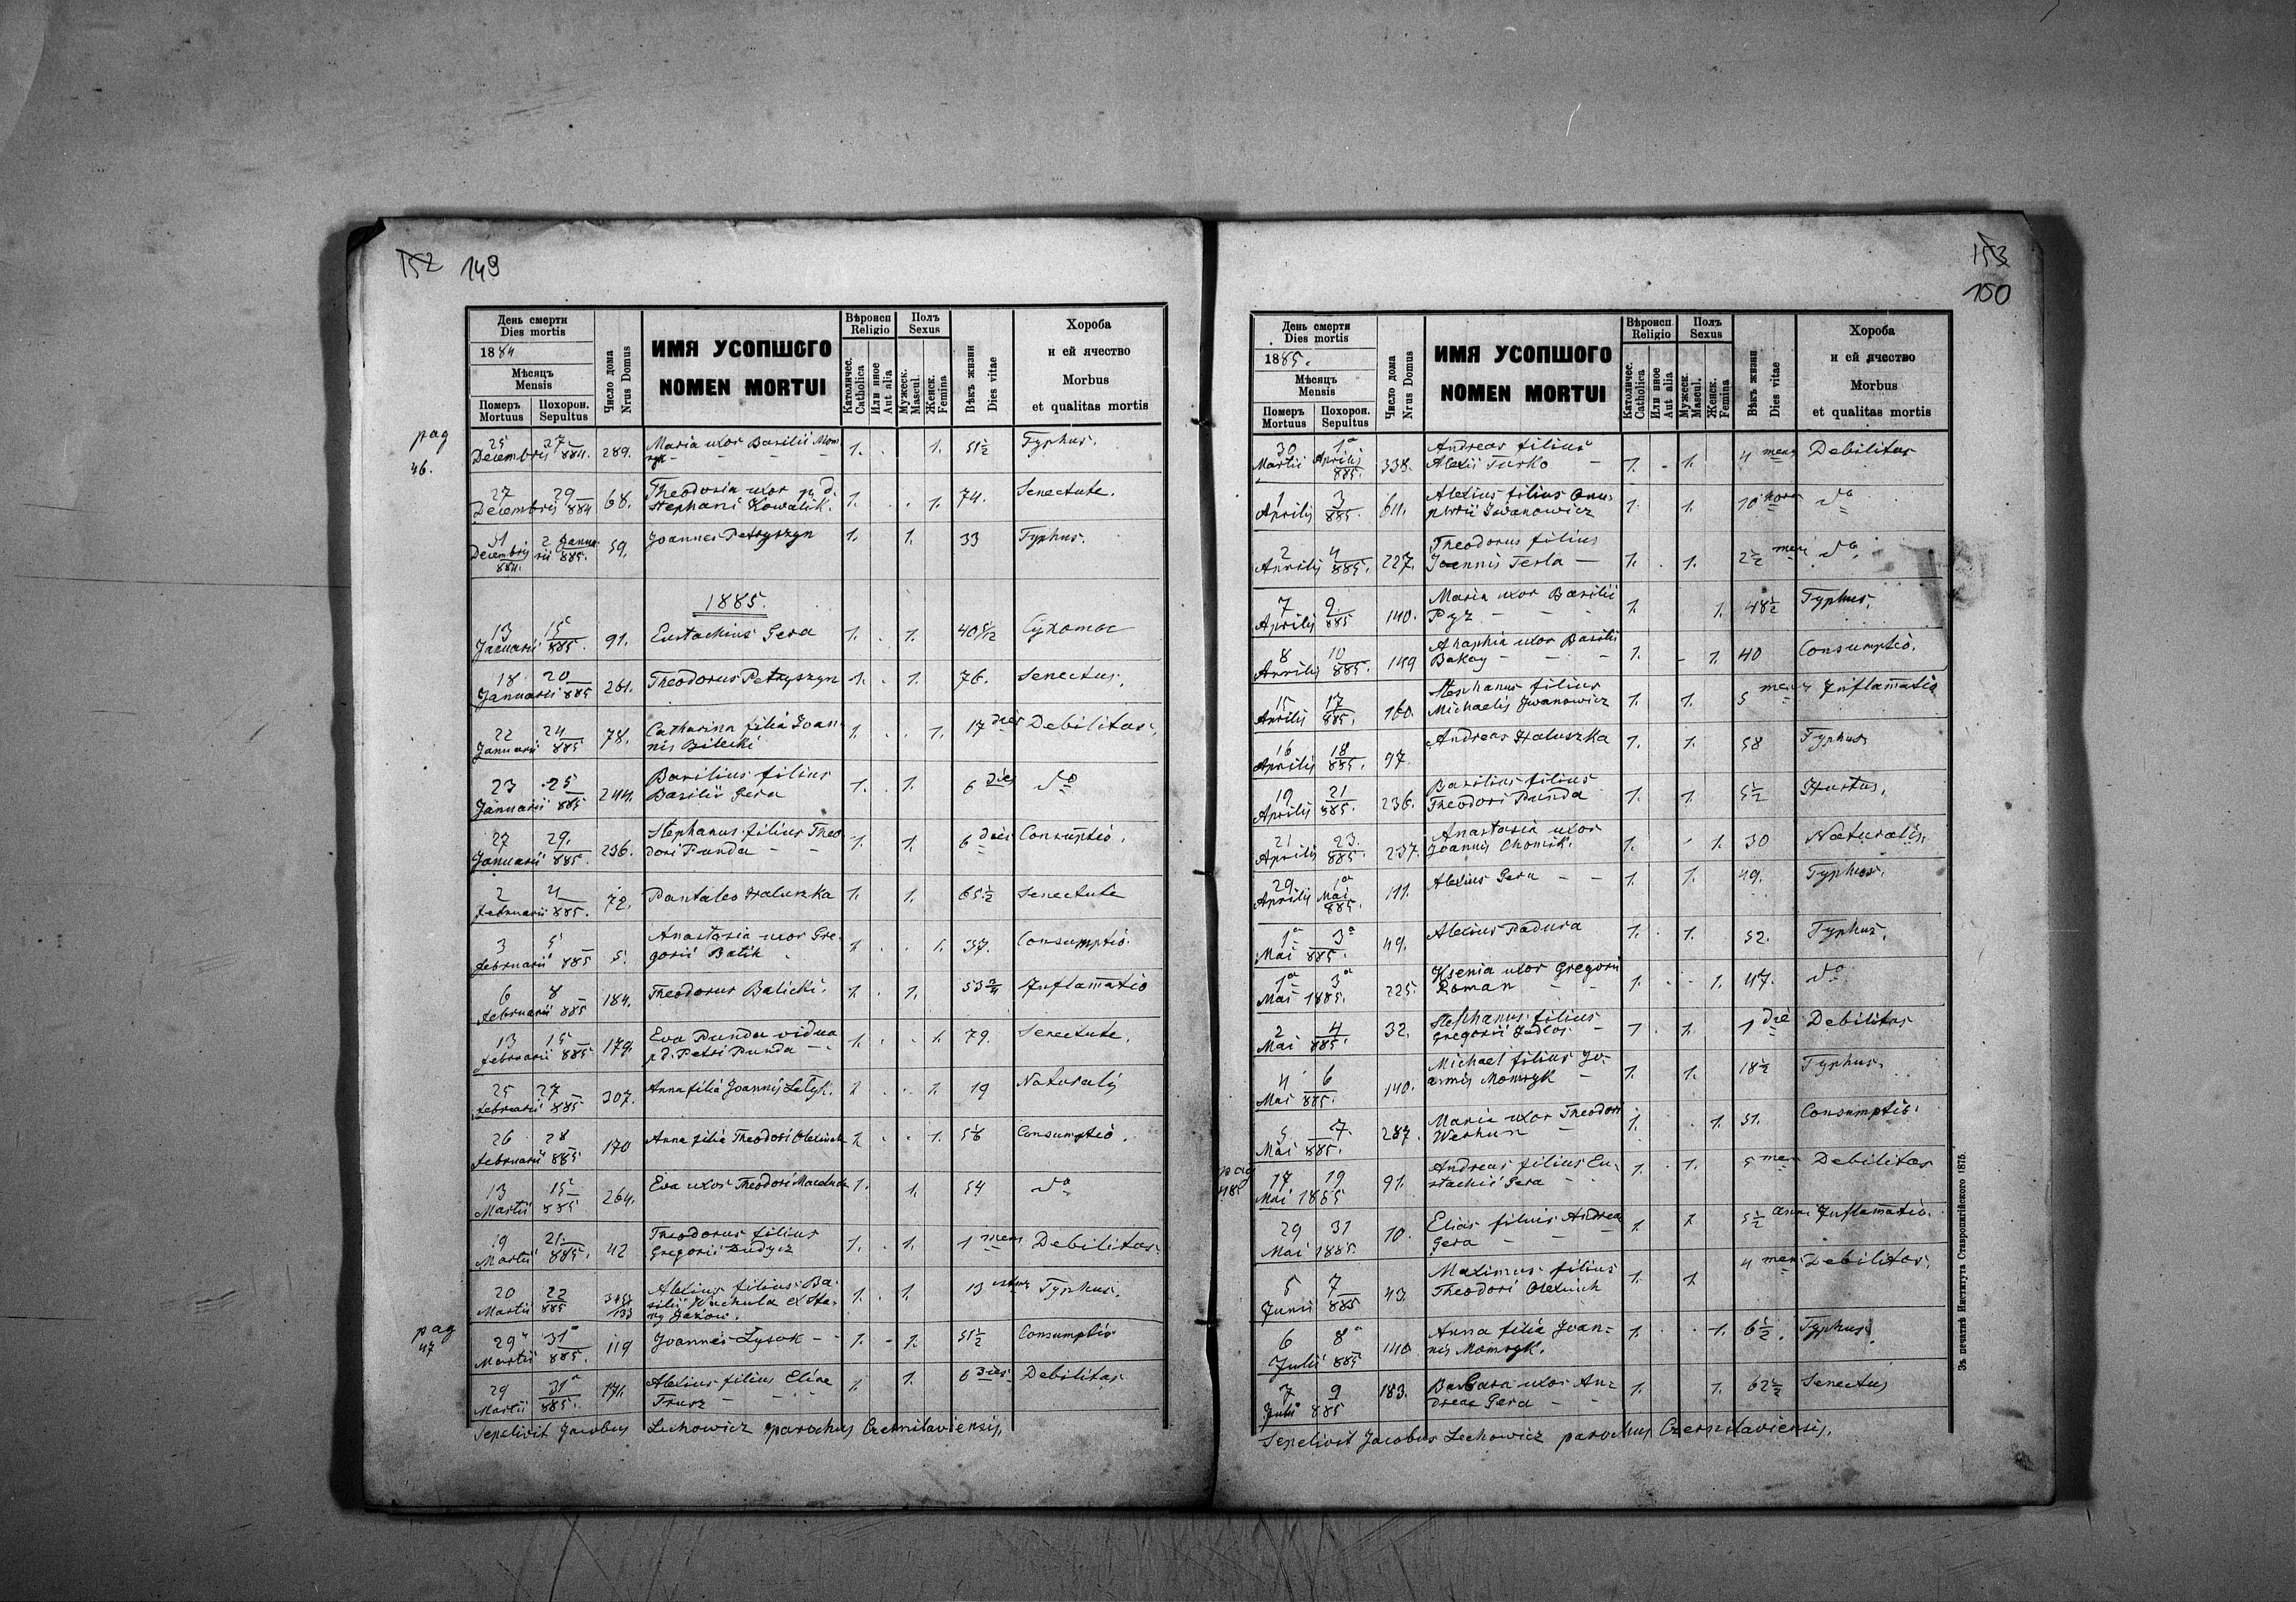 152 149
День смерти
Dies mortis
1884
Мѣсяцъ
Mensis
Померъ Mortuus
Похорон. Sepultus
Число дома
Nrus Domus
ИМЯ УСОПШОГО
NOMEN MORTUI
Вѣроисп
Religio
Католичес. Catholica
Или иное Aut alia
Полъ
Sexus
Мужеск. Mascul.
Женск. Femina
Вѣкъ жизни
Dies vitae
Хороба
и ей ячество
Morbus
et qualitas mortis
pag 46.
25 27 289. Maria uxor Basilii Mom- 1. 1. 51½ Typhus.
Decembris 884. ryk
27 29 68. Theodosia uxor p. d. 1. 1. 74. Senectute.
Decembris 884 Stephani Kowalik.
31 2 Janua- 59. Joannes Petryszyn 1. 1. 33 Typhus.
Decembris 884. rii 885.
1885.
13 15 91. Eustachius Gera 1. 1. 40 5/12 Сухоты
Januarii 885.
18 20 261. Theodorus Petryszyn 1. 1. 76. Senectus.
Januarii 885
22 24 78. Catharina filia Joan- 1. 1. 17 dies Debilitas.
Januarii 885 nis Bilecki
23 25 244. Basilius filius 1. 1. 6 dies do
Januarii 885 Basilii Gera
27 29. 236. Stephanus filius Theo- 1. 1. 6 dies Consumptio.
Januarii 885. dori Punda
2 4 72. Pantaleo Haluszka 1. 1. 65½ Senectute
Februarii 885.
3 5 5. Anastasia uxor Gre- 1. 1. 37. Consumptio.
Februarii 885 gorii Batik
6 8 184. Theodorus Balicki. 1. 1. 53¾ Inflamatio
Februarii 885
13 15 179. Eva Punda vidua 1. 1. 79. Senectute.
Februarii 885 p d. Petri Punda
25 27 307. Anna filia Joannis 1. 1. 19 Naturalis
Februarii 885
26 28 170 Anna filia Theodori Olexiuch 1. 1. Consumptio.
Februarii 885
13 15 264. Eva uxor Theodori 1. 1. 54 do
Martii 885
19 21. 42 Theodorus filius 1. 1. 1 mens Debilitas.
Martii 885. Gregorii Dudycz
20 22 Alexius filius Ba- 1. 1. 13 Typhus.
Martii 885 133 silii Wachula ex Sta-
ry Jazow.
pag 47
29 31 119 Joannes Lysak 1. 1. 51½ Consumptio
Martii 885.
29 31 171. Alexius filius Eliae 1. 1. 6 dies Debilitas
Martii 885. Trusz
Sepelivit Jacobus Lechowicz parochus Czernilaviensis.
153
150
День смерти
Dies mortis
1885.
Мѣсяцъ
Mensis
Померъ Mortuus
Похорон. Sepultus
Число дома
Nrus Domus
ИМЯ УСОПШОГО
NOMEN MORTUI
Вѣроисп
Religio
Католичес. Catholica
Или иное Aut alia
Полъ
Sexus
Мужеск. Mascul.
Женск. Femina
Вѣкъ жизни
Dies vitae
Хороба
и ей ячество
Morbus
et qualitas mortis
30 1a 338. Andreas filius 1. 1. 4 mens Debilitas
Martii Aprilis 885. Alexii Turko
1 3 Alexius filius Onu- 1. 1. 10 hora do
Aprilis 885. phrii Iwanowicz
2 4 227. Theodorus filius 1. 1. 2½ mens do
Aprilis 885. Joannis Tesla
7 9 140. Maria uxor Basilii 1. 1. 48½ Typhus.
Aprilis 885 Pyz
8 10 149 Ahaphia uxor Basilii 1. 1. 40 Consumptio.
Aprilis 885. Bakay
15 17 160. Stephanus filius 1. 1. 5 mens Inflamatio
Aprilis 885. Michaelis Iwanowicz
16 18 97. Andreas Haluszka 1. 1. 58 Typhus
Aprilis 885.
19 21 236. Basilius filius 1. 1. 5½ Hustus.
Aprilis 885. Theodori Punda
21 23. 237. Anastasia uxor 1. 1. 30 Naturalis.
Aprilis 885. Joannis Chomik.
29 1a 111. Alexius Gera 1. 1. 49. Typhus.
Aprilis Mai 885.
1a 3a 49. Alexius Padura 1. 1. 52. Typhus.
Mai 885.
1a 3a 225. Ksenia uxor Gregorii 1. 1. 47. do
Mai 1885. Roman
2 4 32. Stephanus filius 1. 1. 1 die Debilitas
Mai 885. Gregorii
4 6 140. Michael filius Jo- 1. 1. 18½ Typhus.
Mai 885. annis Momryk
5 7. 287. Maria uxor Theodori 1. 1. 51. Consumptio.
Mai 885. Werhun
pag 48
17 19 91. Andreas filius Eu- 1. 1. 5 mens Debilitas
Mai 1885 stachii Gera
29 31 10. Elias filius Andrea 1. 1. 5½ anni Inflamatio.
Mai 1885. Gera
5 7 43. Maximus filius 1. 1. 4 mens Debilitas.
Junii 885 Theodori Olexiuch
6 8a 140 Anna filia Joan- 1. 1. 6½. Typhus.
Julii 885 nis Momryk.
7 9 183. Barbara uxor An- 1. 1. 62½ Senectus
Julii 885 dreae Gera
Sepelivit Jacobus Lechowicz parochus Czernilaviensis.
Зъ печатнѣ Института Ставропигійского 1875.